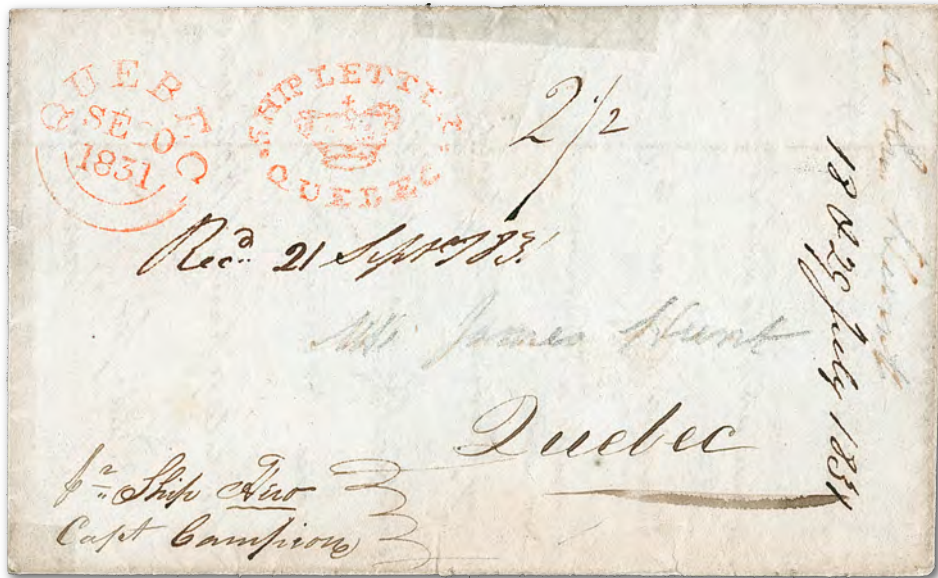 QUEBEC
SE 20
1831
SHIP LETTER
QUEBEC
2/2
Recd. 21 Septr 183
Mr James Hunt
Quebec
pr Ship Hero
Capt Campion
18 & 29 July 1831